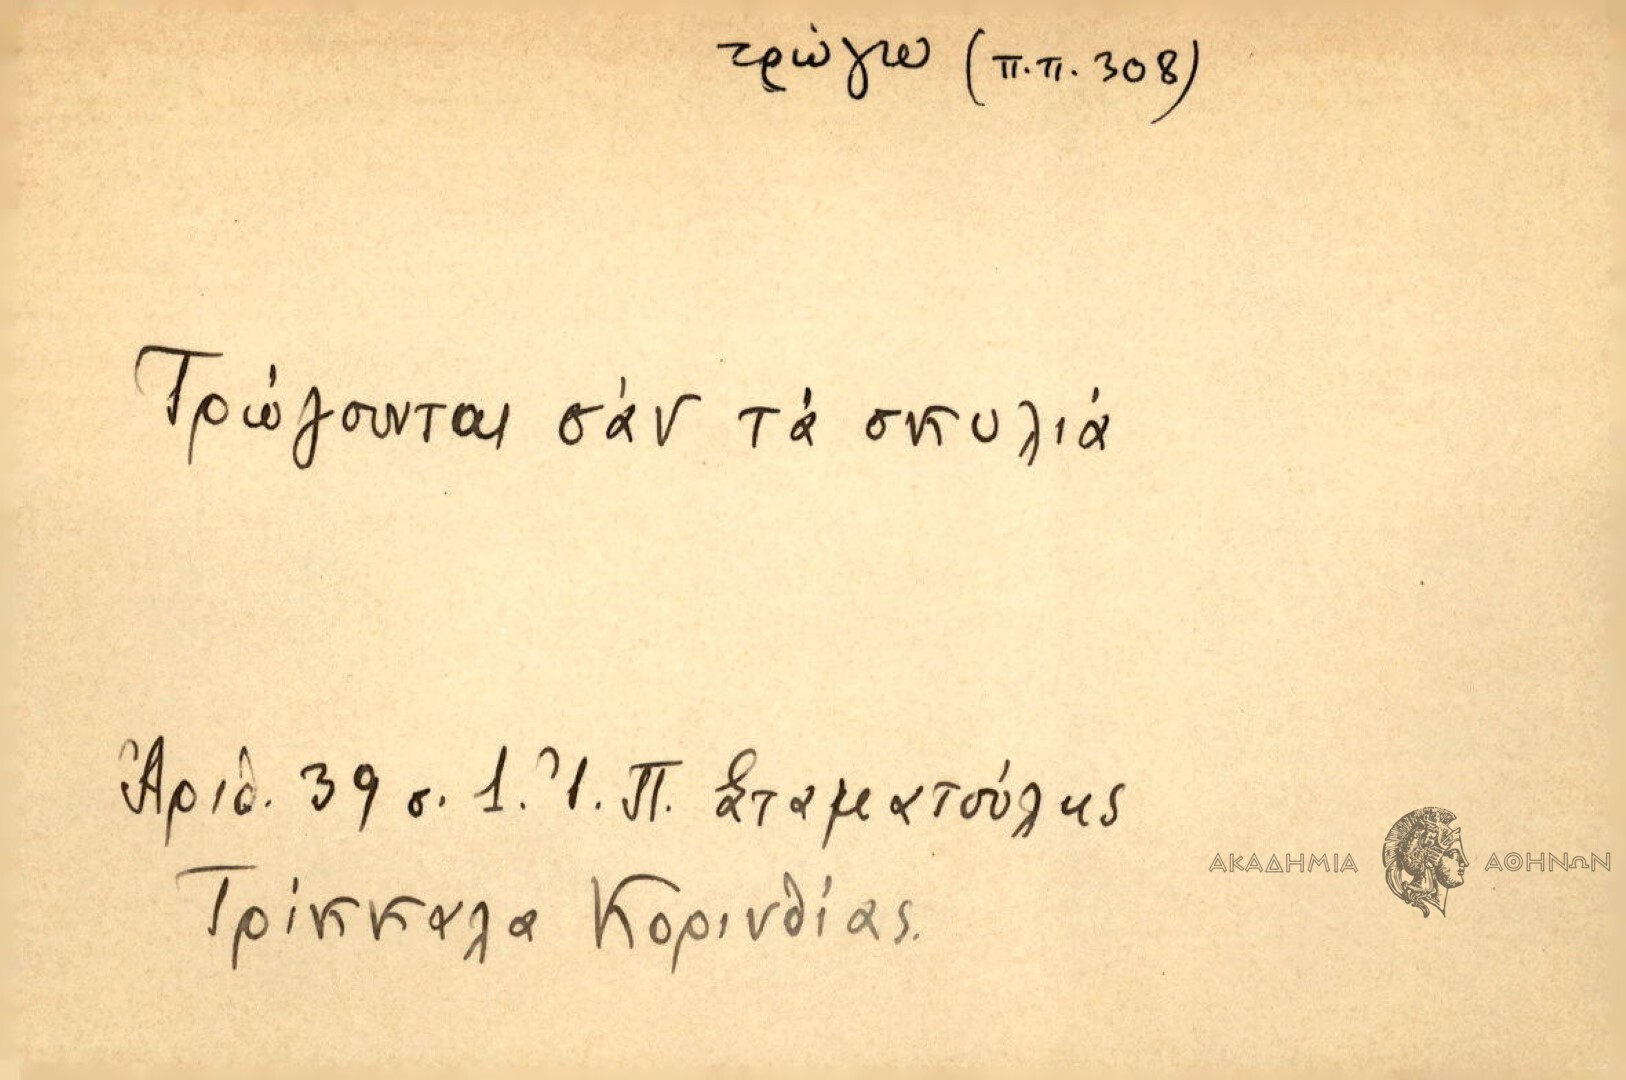 τρώγω (π.π. 308)
Τρώγουνται σάν τά σκυλιά
Ἀριθ. 39 σ. 1. Ἰ. Π. Σταματούλης
Τρίκκαλα Κορινθίας.
ΑΚΑΔΗΜΙΑ ΑΘΗΝΩΝ